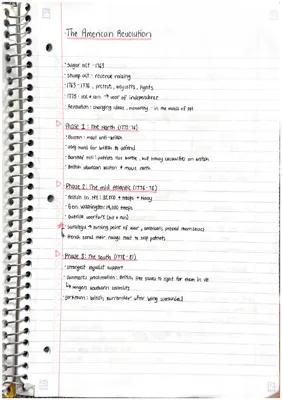 ·The American Revolution
·Sugar act - 1763
·Stamp act - revenue raising
·1763 - 1776, protest, boycotts, fights
·1775 - war of independence
·Revolution: changing ideas, mentality - in the minds of ppl
Phase 1: The north (1775-76)
·Boston: most anti-british
·very hard for british to defend
·Bunker hill: patriots lose battle, but heavy casualties on british
·British abandon Boston + move north
Phase 2: The mid atlantic (1776-78)
·British in NY: 32,000 troops + navy
·Gen. Washington: 19,000 troops
·Guerilla warfare (hit + run)
Saratoga → turning point of war, americans proved themselves
↳ french send their navy to help patriots
Phase 3: The south (1778-81)
·strongest loyalist support
·Dunmore's proclamation: British free slaves to fight for them in
↳ angers southern colonists
·Yorktown: british surrender after being surrounded